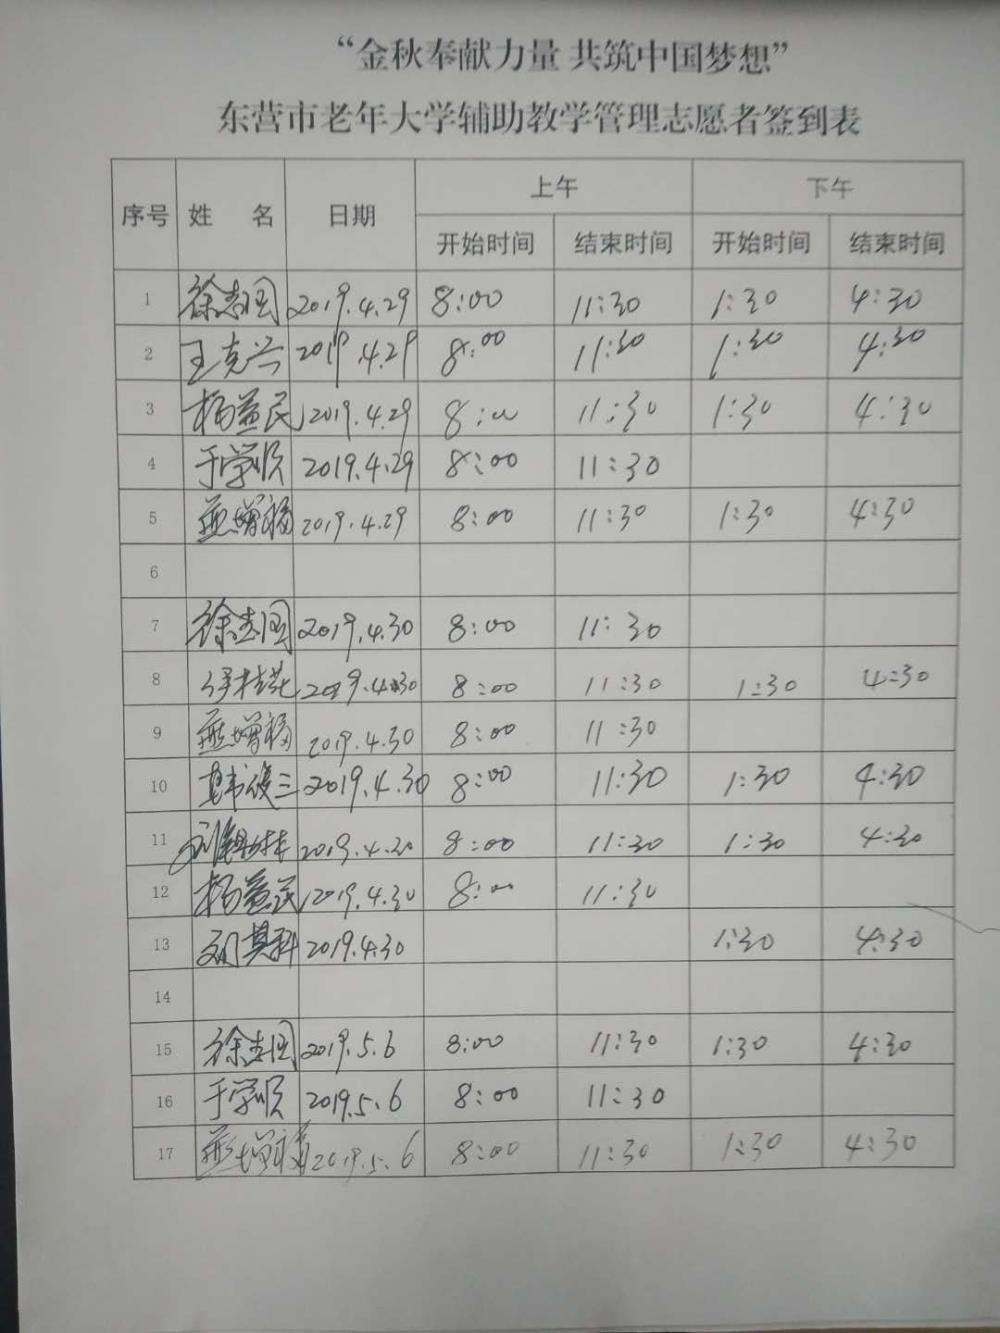 “金秋奉献力量 共筑中国梦想”
东营市老年大学辅助教学管理志愿者签到表
序号 姓 名 日期 上午 下午
开始时间 结束时间 开始时间 结束时间
1 徐志国 2019.4.29 8:00 11:30 1:30 4:30
2 王克兴 2019.4.29 8:00 11:30 1:30 4:30
3 杨益民 2019.4.29 8:00 11:30 1:30 4:30
4 于学顺 2019.4.29 8:00 11:30
5 燕增福 2019.4.29 8:00 11:30 1:30 4:30
6
7 徐志国 2019.4.30 8:00 11:30
8 2019.4.30 8:00 11:30 1:30 4:30
9 燕增福 2019.4.30 8:00 11:30
10 2019.4.30 8:00 11:30 1:30 4:30
11 2019.4.30 8:00 11:30 1:30 4:30
12 杨益民 2019.4.30 8:00 11:30
13 2019.4.30 1:30 4:30
14
15 徐志国 2019.5.6 8:00 11:30 1:30 4:30
16 于学顺 2019.5.6 8:00 11:30
17 燕增福 2019.5.6 8:00 11:30 1:30 4:30